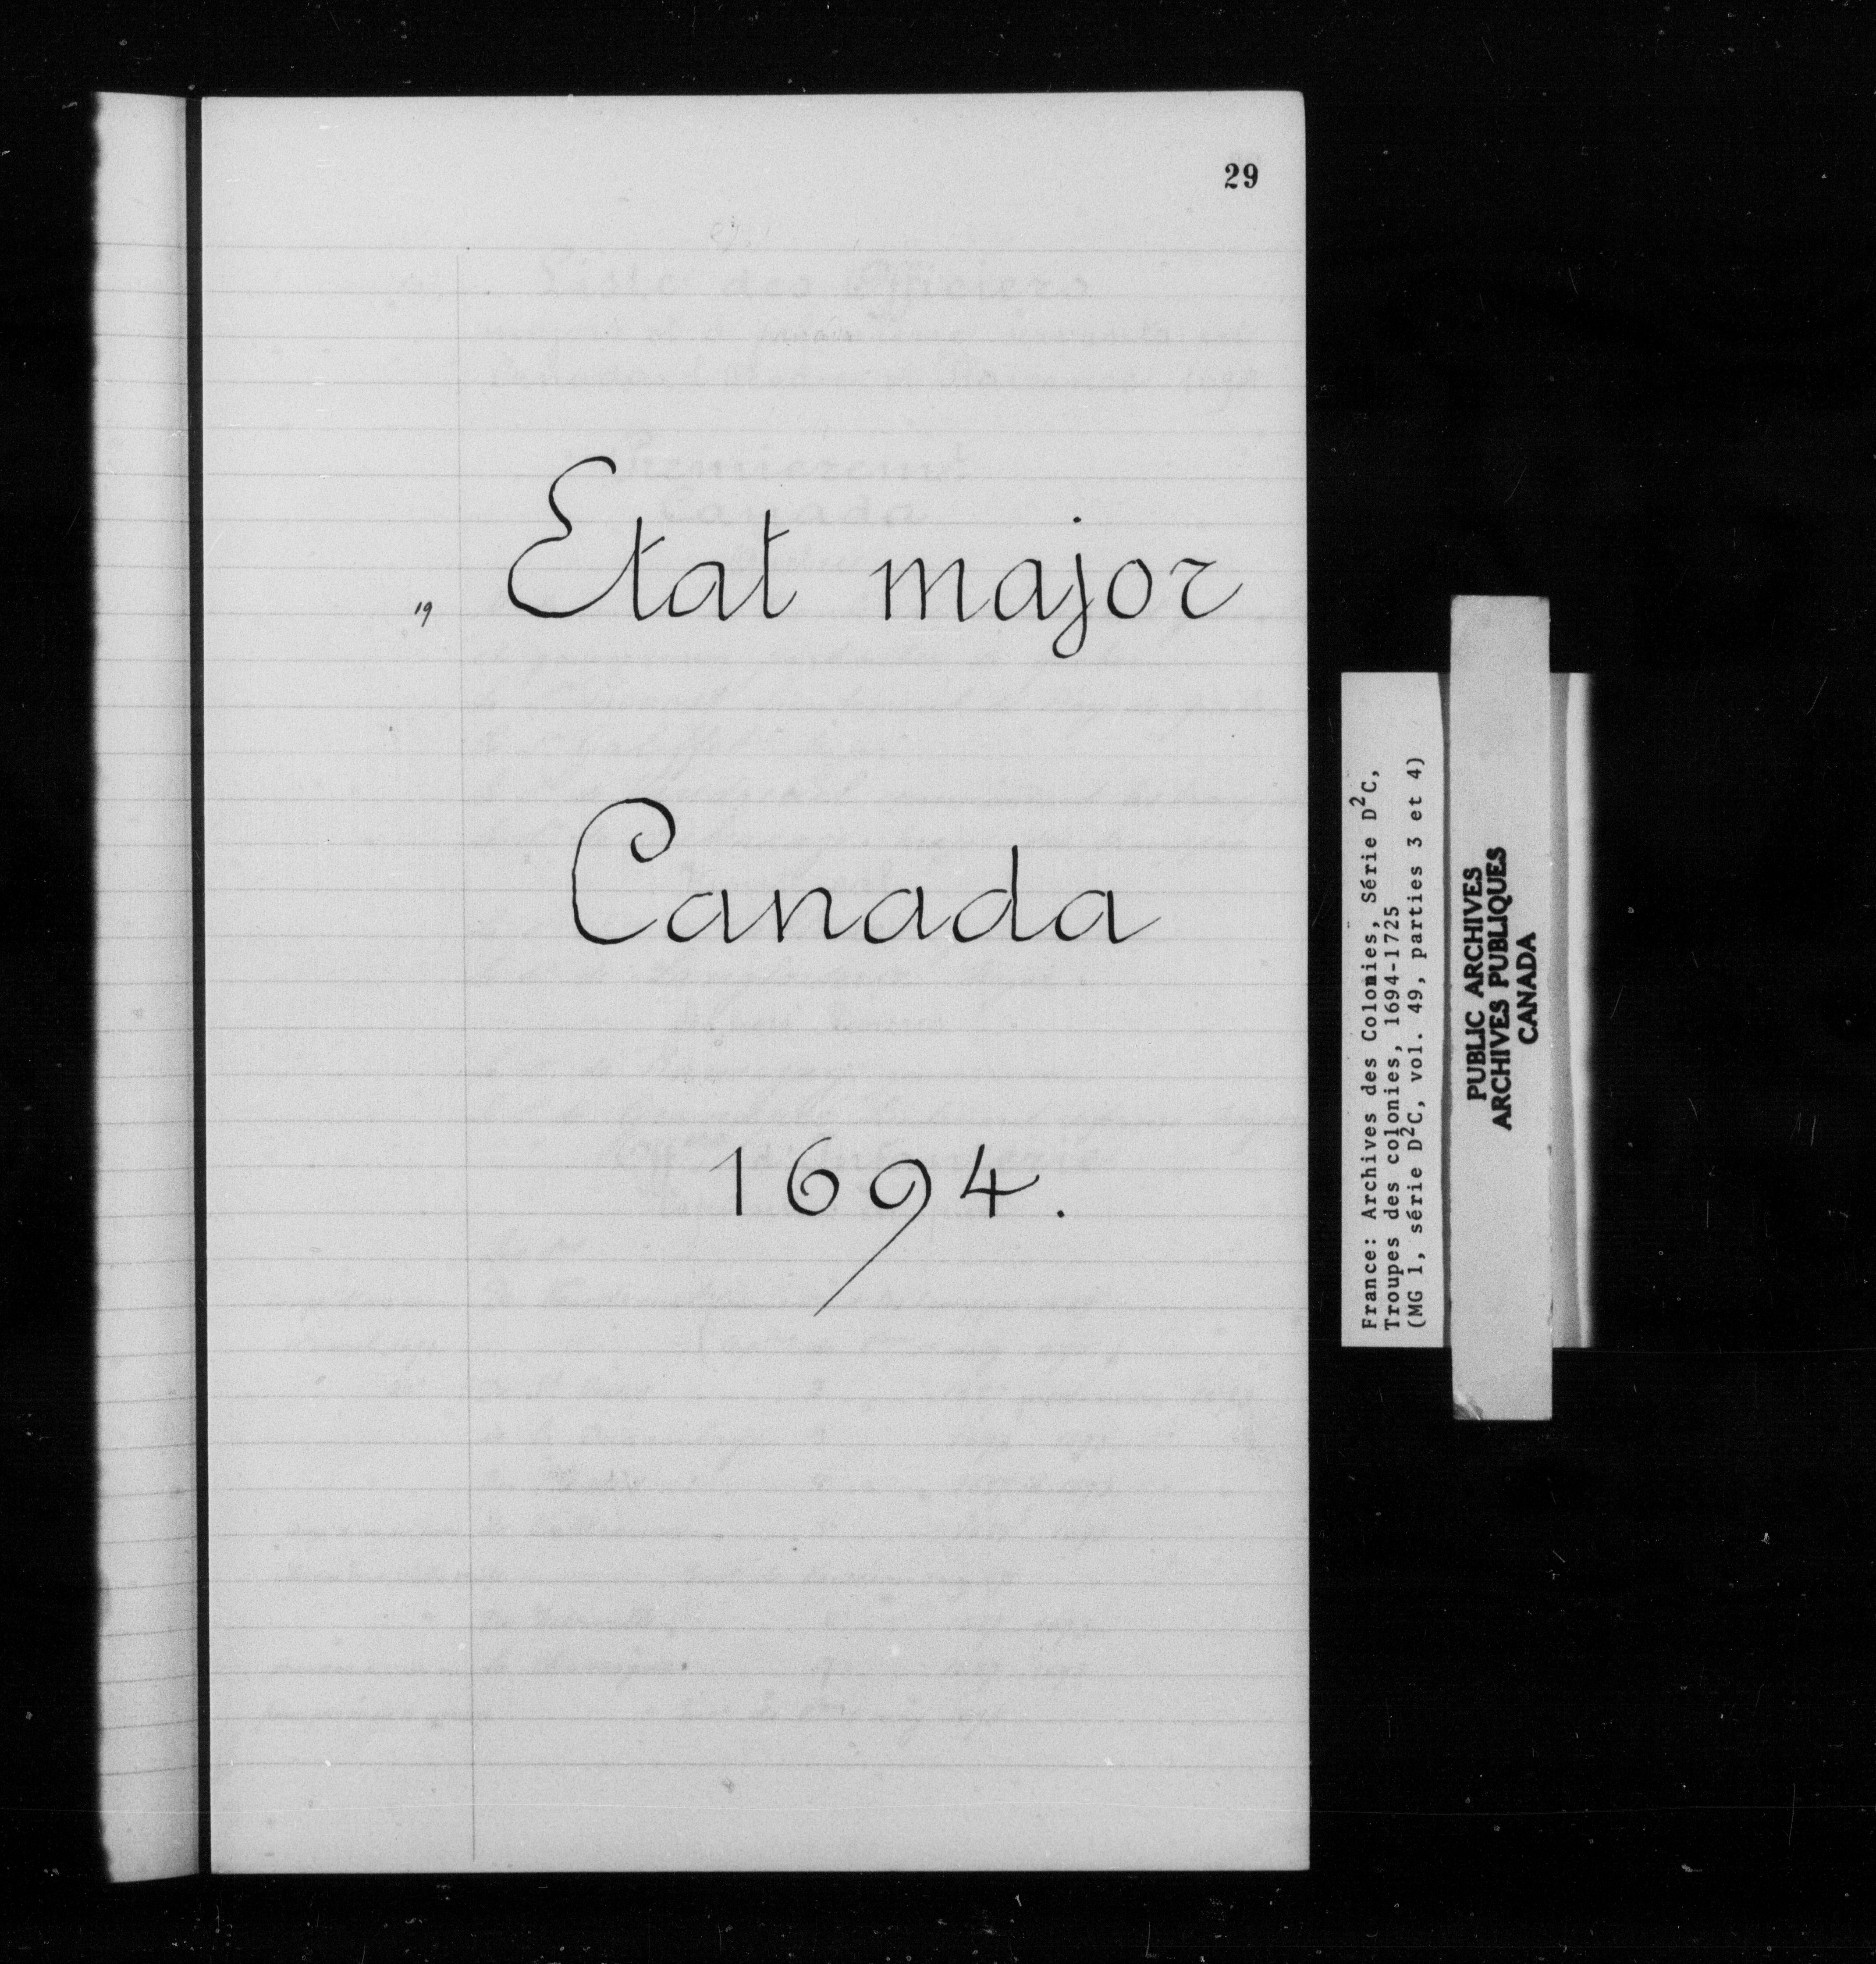 29
" 19 Etat major
Canada
1694.
France: Archives des Colonies, Série D²C,
Troupes des colonies, 1694-1725
(MG 1, série D²C, vol. 49, parties 3 et 4)
PUBLIC ARCHIVES
ARCHIVES PUBLIQUES
CANADA